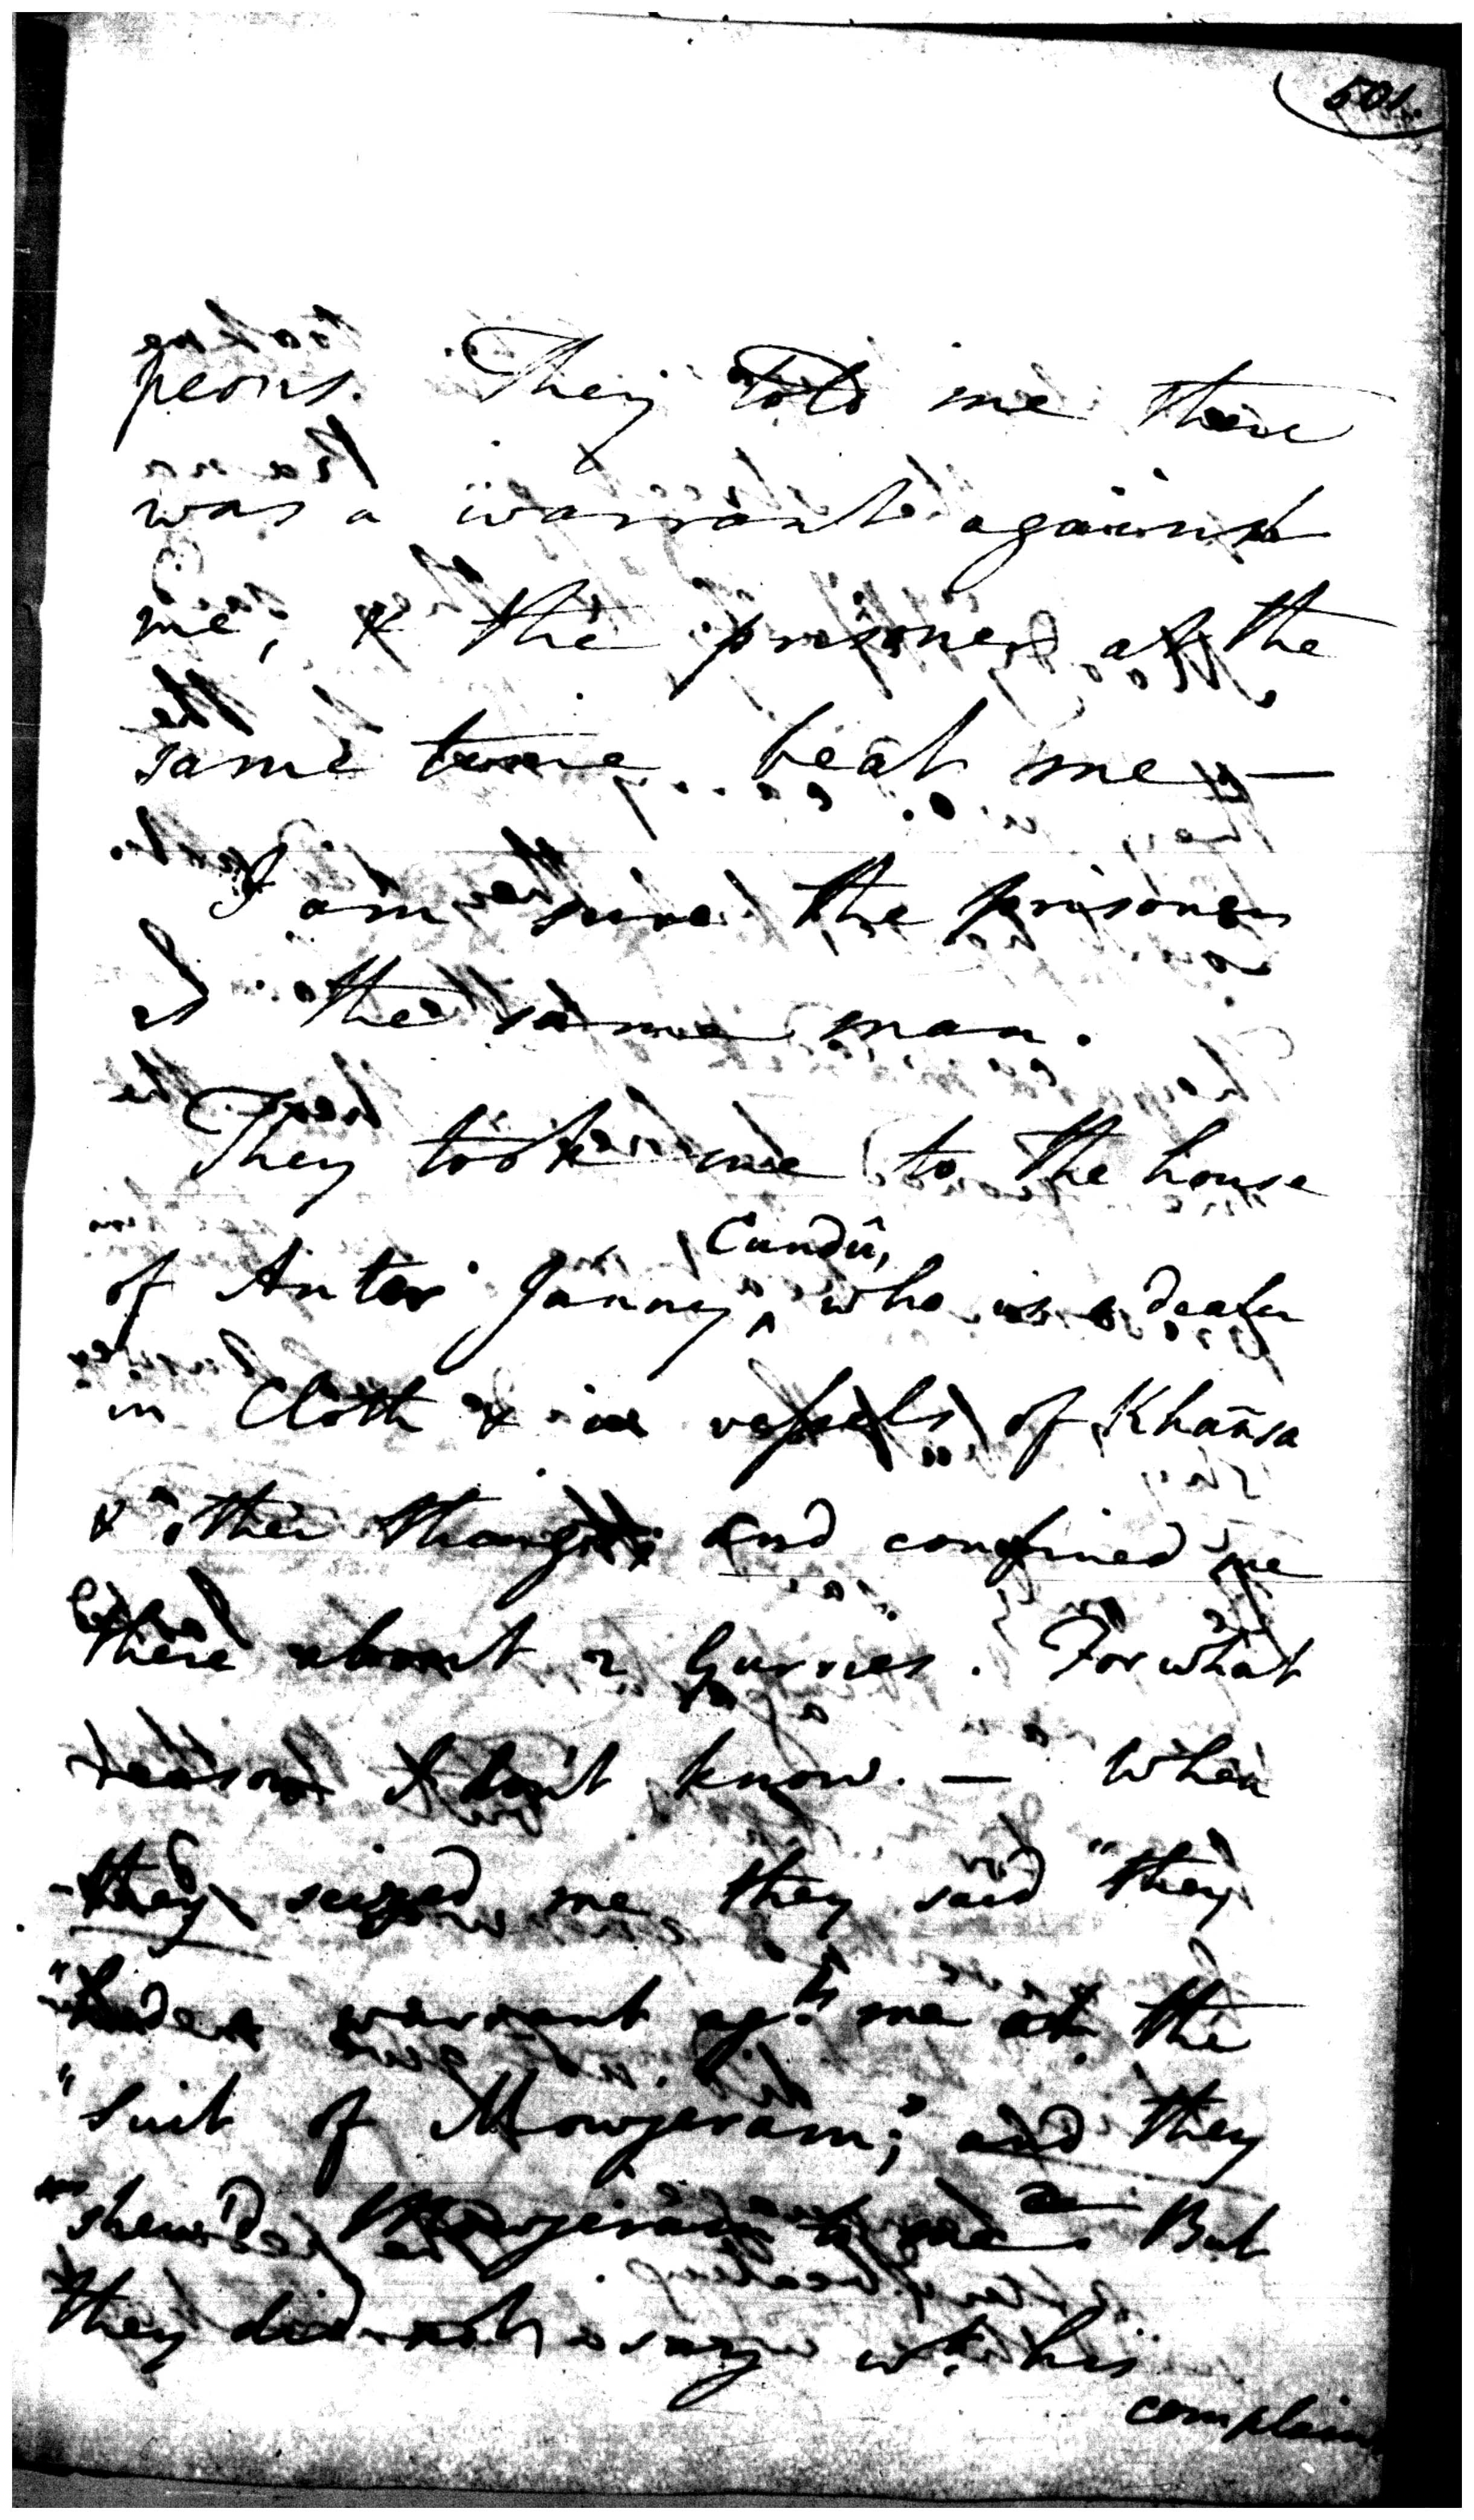 501.
peons. They told me there
was a warrant against
me, & the prisoner at the
same time beat me —
I am sure the prisoner
is the same man.
They took me to the house
of Anter Janney ^ Cundû, who is a dealer
in Cloth & in vessels of Khañsa
& other things and confined me
there about 2 Gurries. For what
reason I don't know. — When
they seized me they said "they
"had a warrant agt. me at the
"suit of Mowjeram;" and they
shewed Mowjeram to me. But
they did not say wt. his
complaint